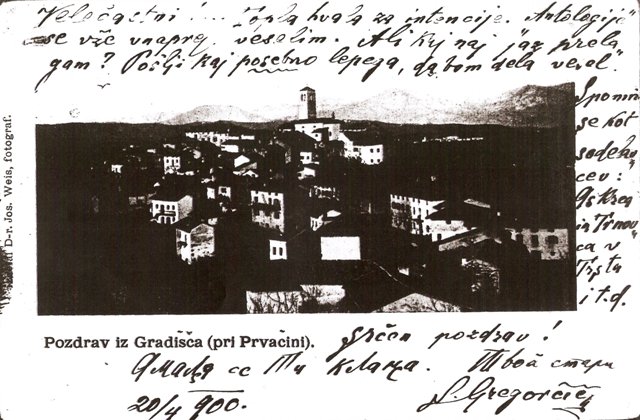 Veločastni! ... Topla hvala za intencije. Antologije
se vže vnaprej veselim. Ali kaj naj "jaz prela
gam? Pošlji kaj posebno lepega, da bom dela vesel.
Spomin
se kot
sodelo
cev:
in Trnov
ca v
Trstu
i t. d.
D-r. Jos. Weis, fotograf.
Pozdrav iz Gradišča (pri Prvačini).
Srčen pozdrav!
Твой стари
20/4 900.
S. Gregorčič